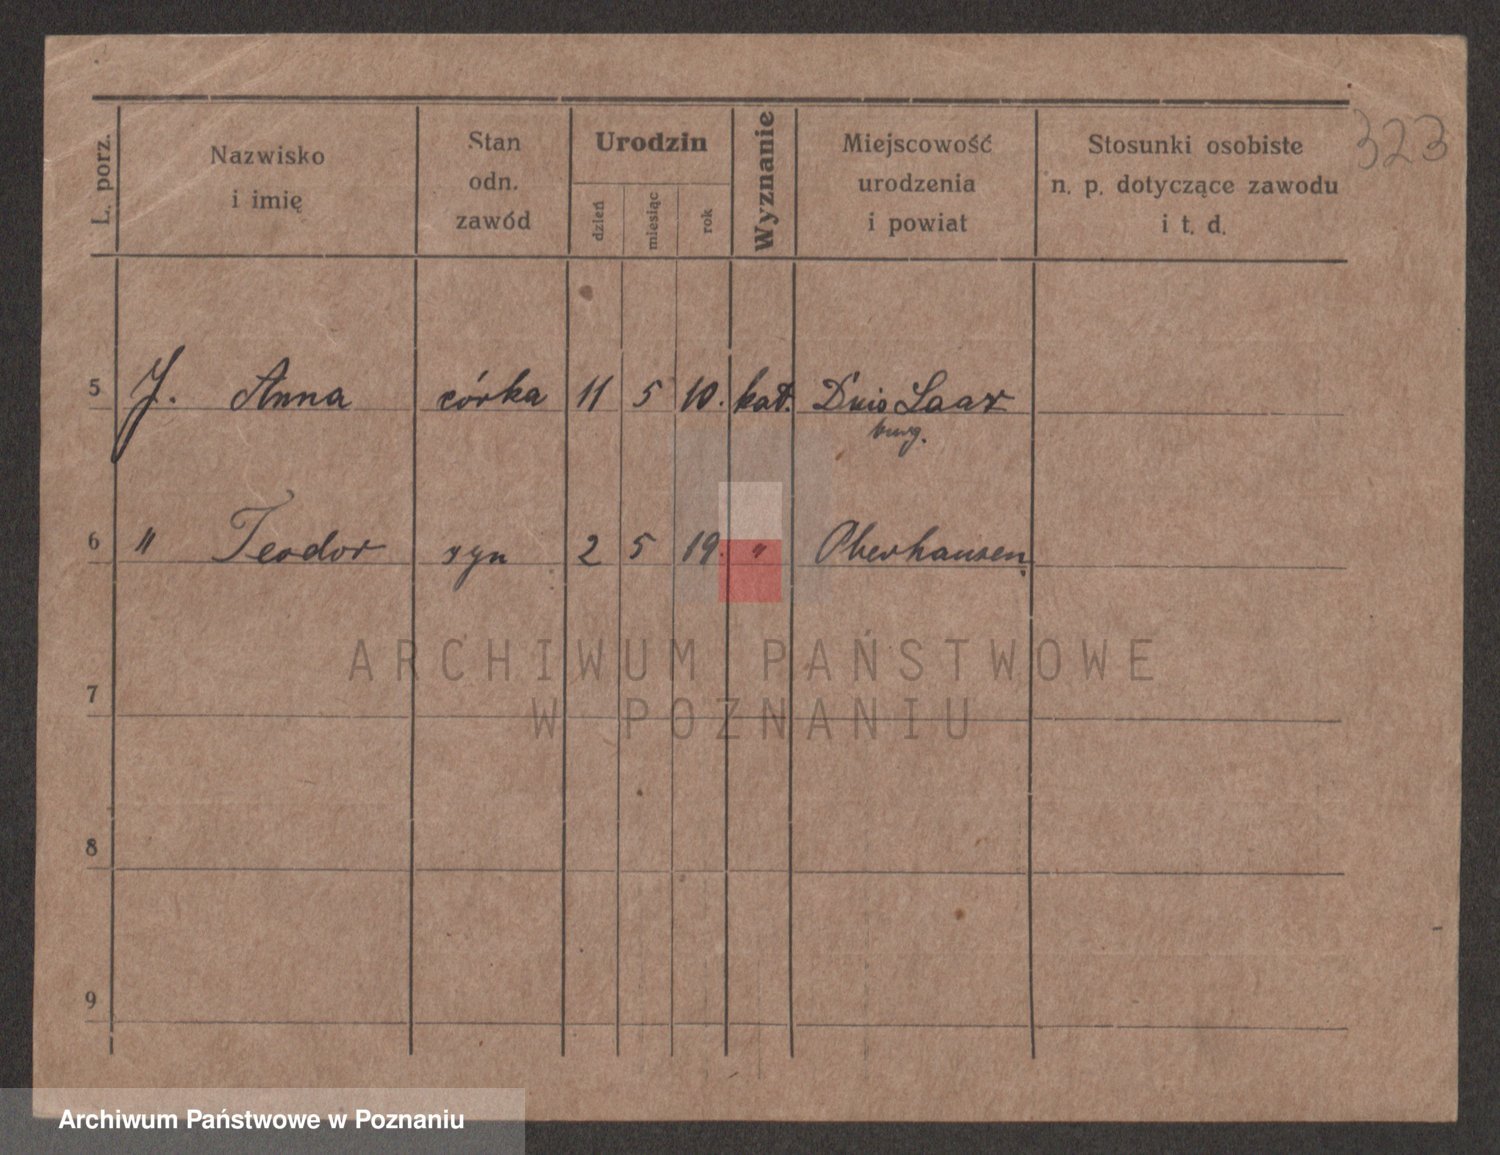 323
L. porz.
Nazwisko
i imię
Stan
odn.
zawód
Urodzin
dzień
miesiąc
rok
Wyznanie
Miejscowość
urodzenia
i powiat
Stosunki osobiste
n. p. dotyczące zawodu
i t. d.
5 J. Anna córka 11 5 10. kat. Duis Laar
burg.
6 " Teodor syn 2 5 19. " Oberhausen
7
8
9
ARCHIWUM PAŃSTWOWE
W POZNANIU
Archiwum Państwowe w Poznaniu